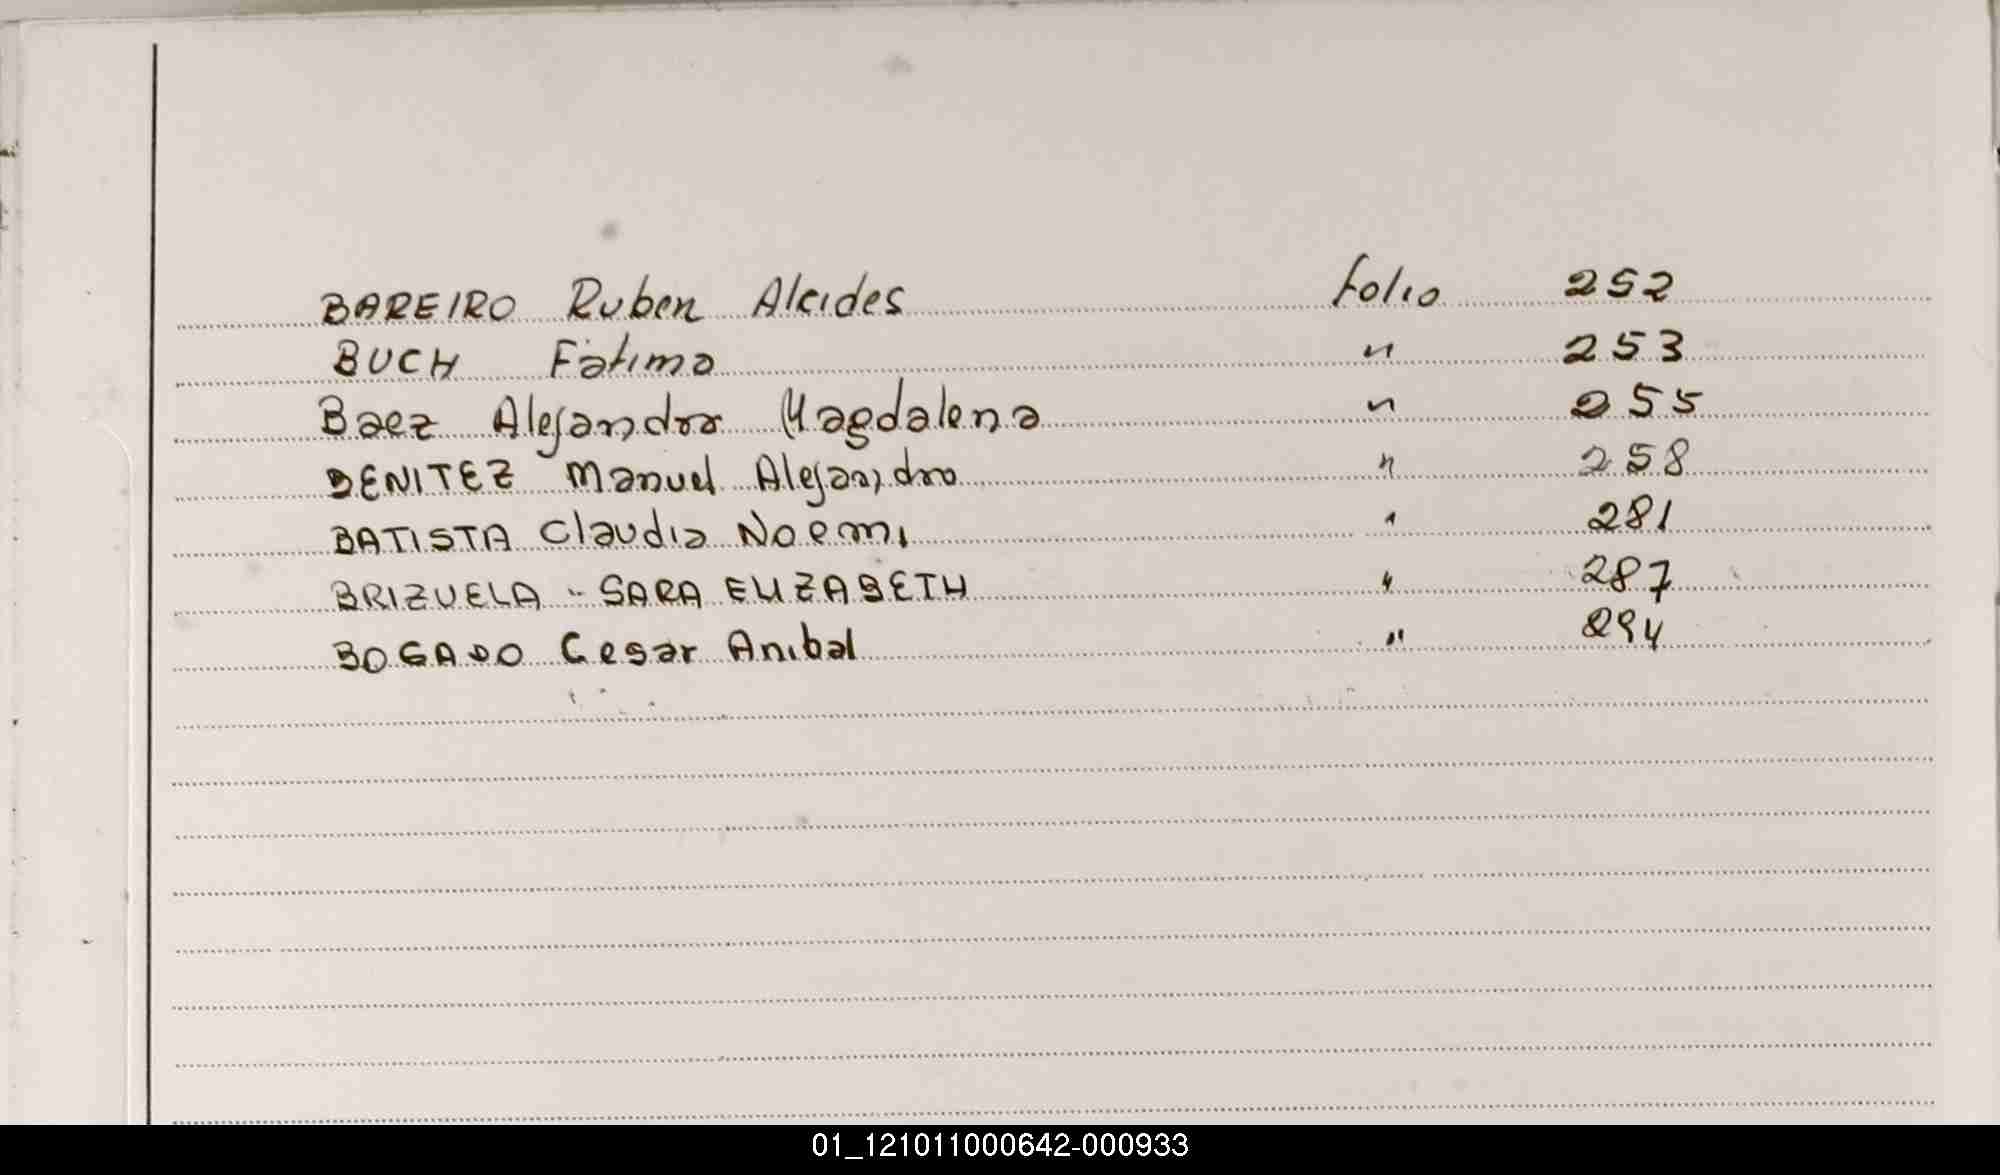 BAREIRO Ruben Alcides folio 252
BUCH Fátima " 253
Baez Alejandra Magdalena " 255
BENITEZ Manuel Alejandro " 258
BATISTA Claudia Noemi " 281
BRIZUELA - SARA ELIZABETH " 287
BOGADO Cesar Anibal " 294
01_121011000642-000933